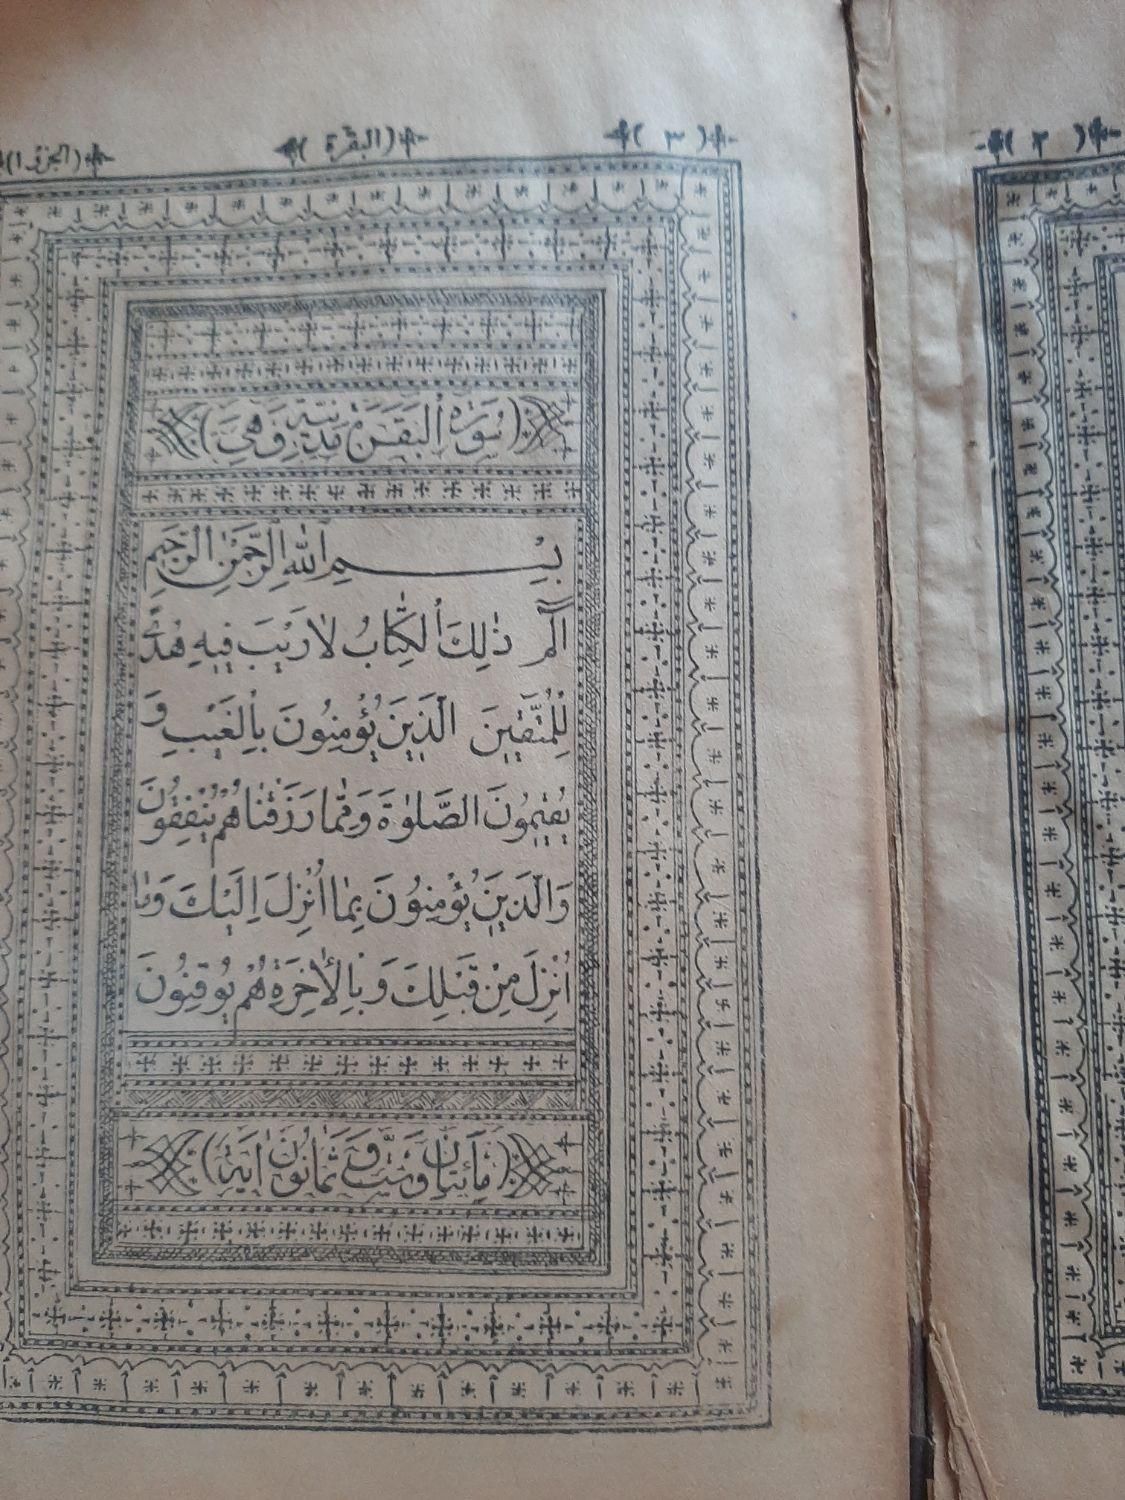 (٢)
(٣)
(البقرة)
(الجزء ١)
(سُورَةُ الْبَقَرَةِ مَدَنِيَّةٌ وَهِيَ)
بِسْمِ اللّٰهِ الرَّحْمٰنِ الرَّحِيمِ
الٓمٓ ذٰلِكَ الْكِتَابُ لَا رَيْبَ فِيهِ هُدًى
لِلْمُتَّقِينَ الَّذِينَ يُؤْمِنُونَ بِالْغَيْبِ وَ
يُقِيمُونَ الصَّلٰوةَ وَمِمَّا رَزَقْنَاهُمْ يُنْفِقُونَ
وَالَّذِينَ يُؤْمِنُونَ بِمَا اُنْزِلَ اِلَيْكَ وَمَا
اُنْزِلَ مِنْ قَبْلِكَ وَبِالْاٰخِرَةِ هُمْ يُوقِنُونَ
(مِائَتَانِ وَسِتٌّ وَثَمَانُونَ اٰيَةً)